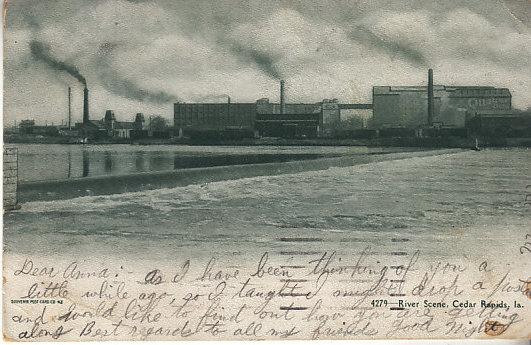 Dear Anna: as I have been thinking of you a
little while ago, so I taught I might drop a post
SOUVENIR POST CARD CO. N.Z
4279—River Scene, Cedar Rapids, Ia.
and would like to find out how you are getting
along Best regards to all my friends Good Night